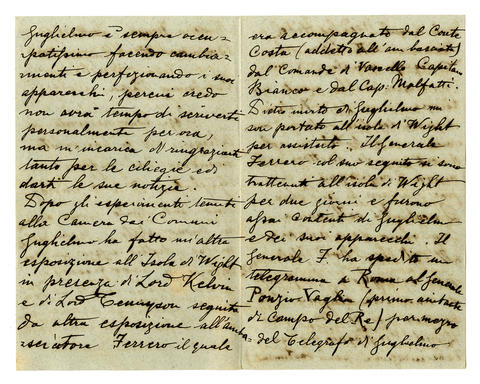 Guglielmo è sempre occu=
patissimo facendo cambia=
menti e perfezionando i suoi
apparecchi, perciò credo
non avrà tempo di scriverti
personalmente per ora,
ma m'incarica di ringraziarti
tanto per le ciliegie ed
darti le sue notizie.
Dopo gli esperimenti tenuti
alla Camera dei Comuni
Guglielmo ha fatto un'altra
esposizione all'Isola di Wight
in presenza di Lord Kelvin
e di Lord Tennyson seguita
da altra esposizione all'amba=
sciatore Ferrero il quale
era accompagnato dal Conte
Costa (addetto all'ambasciata)
dal Comand. di Vascello Capitan
Bianco e dal Cap. Malfatti.
Dietro invito di Guglielmo mi
son portato all'isola di Wight
per assistervi. Il Generale
Ferrero col suo seguito si sono
trattenuti all'isola di Wight
per due giorni e furono
assai contenti di Guglielmo
e dei suoi apparecchi. Il
Generale F. ha spedito un
telegramma a Roma al Generale
Ponzio Vaglia (primo aiutante
di Campo del Re) per mezzo
del Telegrafo di Guglielmo